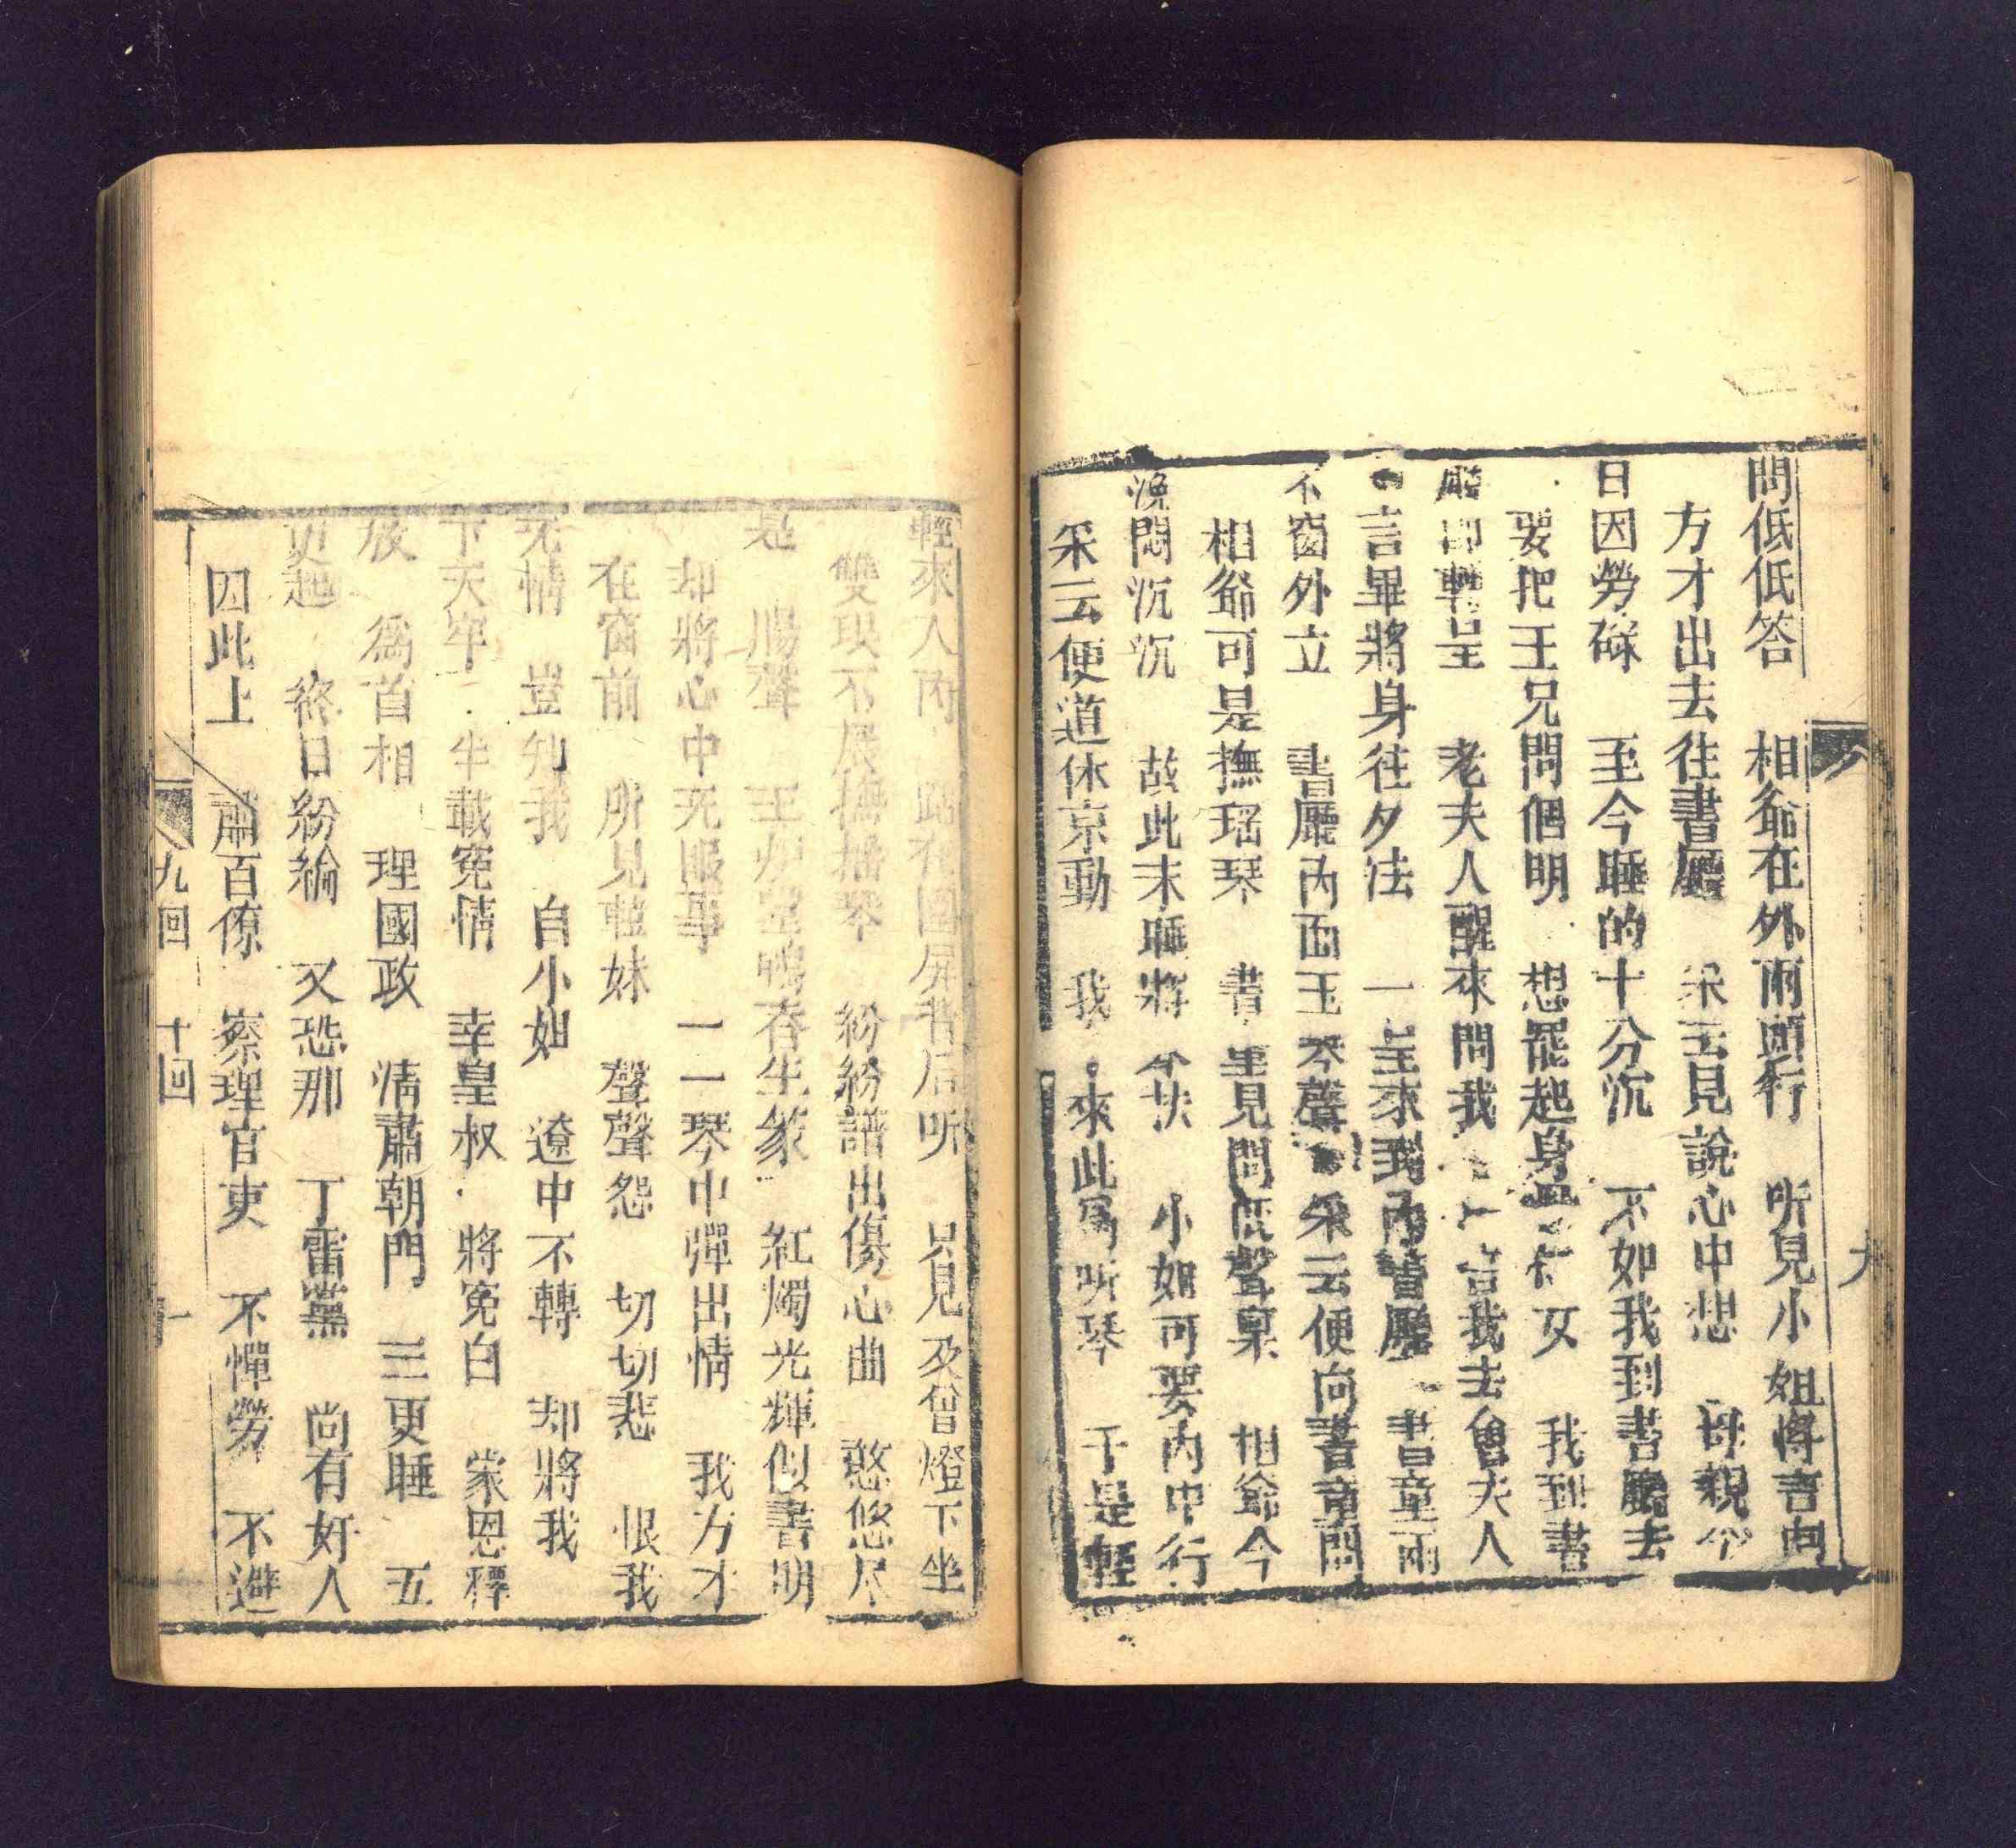 問低低答 相爺在外兩頭行 听見小姐將言向
方才出去往書廳 采云見說心中想 母親今
日因勞碌 至今睡的十分沉 不如我到書廳去
要把王兄問個明 想罷起身 女 我到書
廳 老夫人醒來問我 言我去會夫人
言畢將身往夕法 一 來到內書廳 書童兩
不窗外立 書廳內面玉琴聲 采云便向書童問
相爺可是撫瑶琴 書童見問低聲稟 相爺今
晚悶沉沉 故此末睡將 小姐可要內中行
采云便道休京動 我 來此爲听琴 于是輕
輕來入內 站在圍屏背后听 只見 曾燈下坐
雙 不展撫瑤琴 紛紛譜出傷心曲 憨悠尽
是 腸聲 王炉 春生篆 紅燭光輝似書明
却將心中死服事 一一琴中彈出情 我方才
在窗前 所見 妹 聲聲怨 切切悲 恨我
无情 豈知我 自小姐 遼中不轉 却將我
下天牢 半載冤情 幸皇叔 將冤白 蒙恩釋
放 爲首相 理國政 淸肅朝門 三更睡 五
更起 終日紛綸 又恐那 丁雷黨 尚有奸人
因此上 肅百僚 察理官吏 不憚勞 不避
九回 十回 一